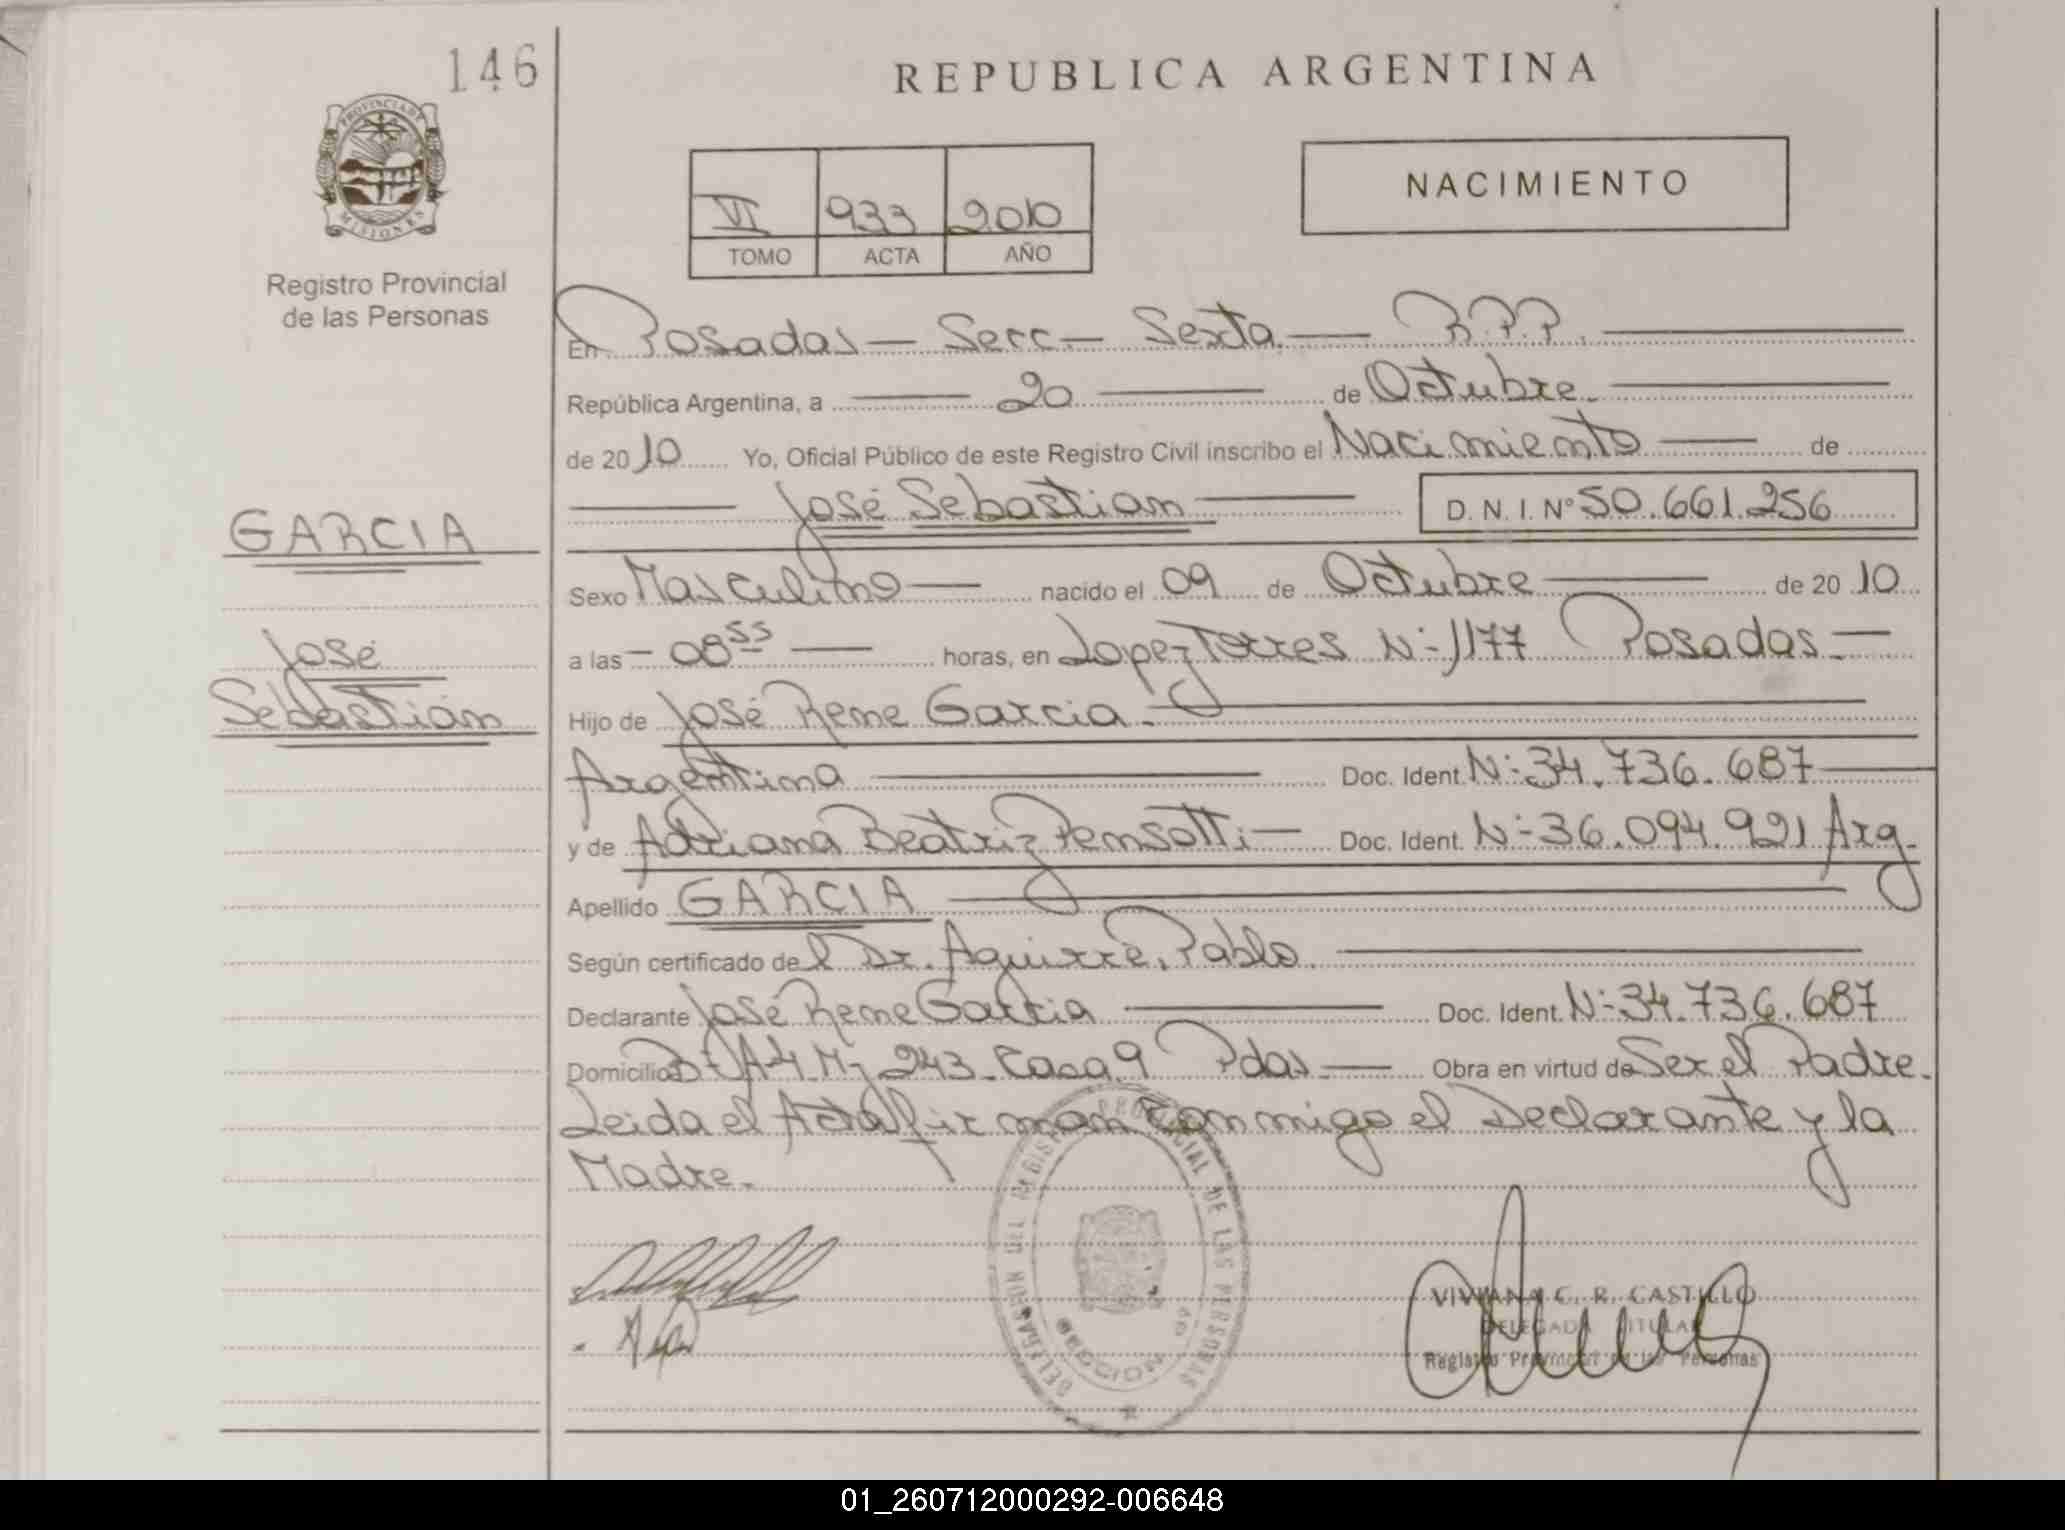 146
PROVINCIA DE
MISIONES
Registro Provincial
de las Personas
REPUBLICA ARGENTINA
VI 933 2010
TOMO ACTA AÑO
NACIMIENTO
En Posadas — Secc — Sexta — R.P.P.
República Argentina, a — 20 — de Octubre.
de 2010 Yo, Oficial Público de este Registro Civil inscribo el Nacimiento — de
José Sebastian D. N. I. Nº 50.661.256
GARCIA
José
Sebastián
Sexo Masculino — nacido el 09 de Octubre — de 2010
a las — 08 55 — horas, en Lopez Torres Nº 1177 Posadas —
Hijo de José Rene Garcia.
Argentina — Doc. Ident. Nº 34.736.687
y de Adriana Beatriz Pensotti — Doc. Ident. Nº 36.094.921 Arg.
Apellido GARCIA
Según certificado del Dr. Aguirre, Pablo.
Declarante José Rene Garcia — Doc. Ident. Nº 34.736.687
Domicilio A4 Mz 243 Casa 9 Pdas. — Obra en virtud de Ser el Padre.
Leida el Acta firman conmigo el Declarante y la
Madre.
DELEGACION DEL REGISTRO PROVINCIAL DE LAS PERSONAS
SECCION 6ª
VIVIANA C. R. CASTILLO
DELEGADA TITULAR
Registro Provincial de las Personas
01_260712000292-006648